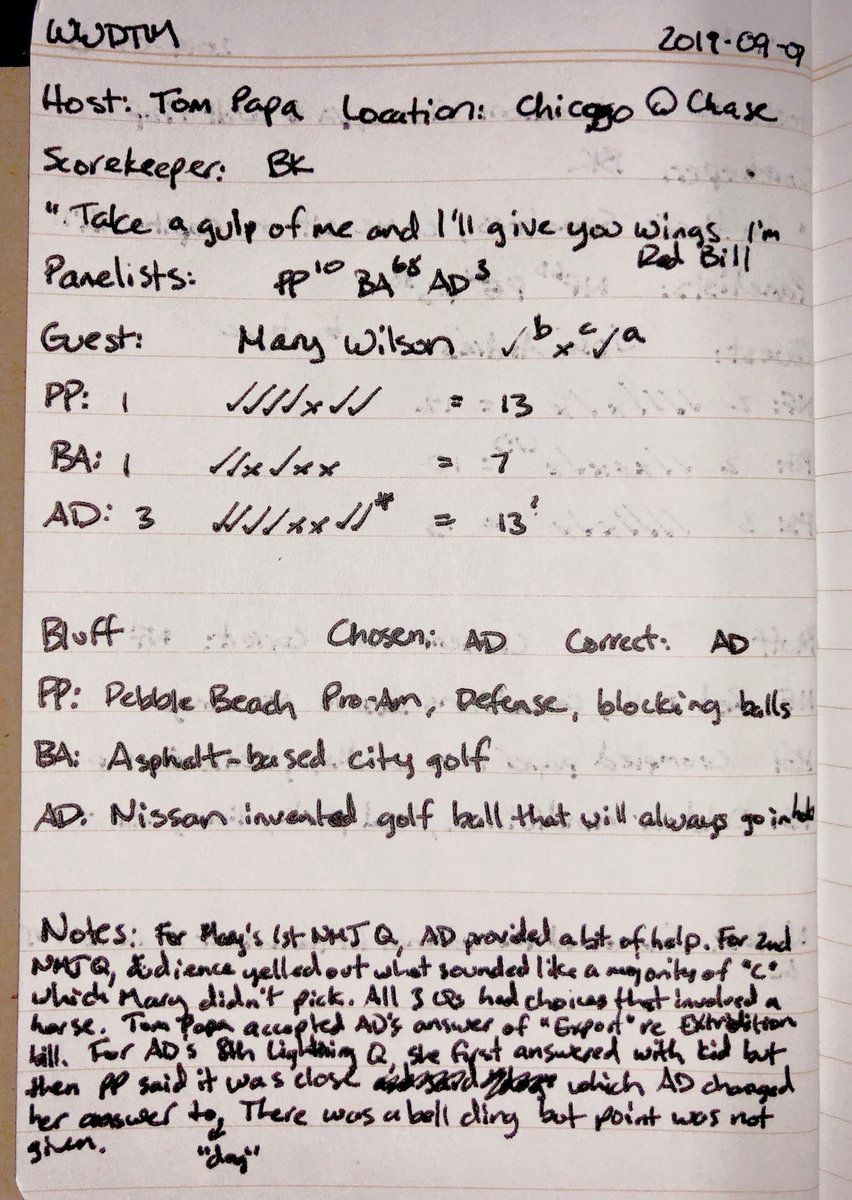 WWDTM 2019-09-07
Host: Tom Papa Location: Chicago @ Chase
Scorekeeper: BK
"Take a gulp of me and I'll give you wings. I'm
Red Bill
Panelists: PP¹⁰ BA⁶⁸ AD³
Guest: Mary Wilson ✓ᵇ xᶜ ✓ᵃ
PP: 1 ✓✓✓✓x✓✓ = 13
BA: 1 ✓✓x✓xx = 7
AD: 3 ✓✓✓✓xx✓✓* = 13
Bluff Chosen: AD Correct: AD
PP: Pebble Beach Pro-Am, Defense, blocking balls
BA: Asphalt-based city golf
AD: Nissan invented golf ball that will always go in hole
Notes: For Mary's 1st NMJ Q, AD provided a bit of help. For 2nd
NMJ Q, audience yelled out what sounded like a majority of "C"
which Mary didn't pick. All 3 Qs had choices that involved a
horse. Tom Papa accepted AD's answer of "Export" re Extradition
bill. For AD's 8th Lightning Q, she first answered with kid but
then PP said it was close which AD changed
her answer to, There was a bell ding but point was not
given. "dog"